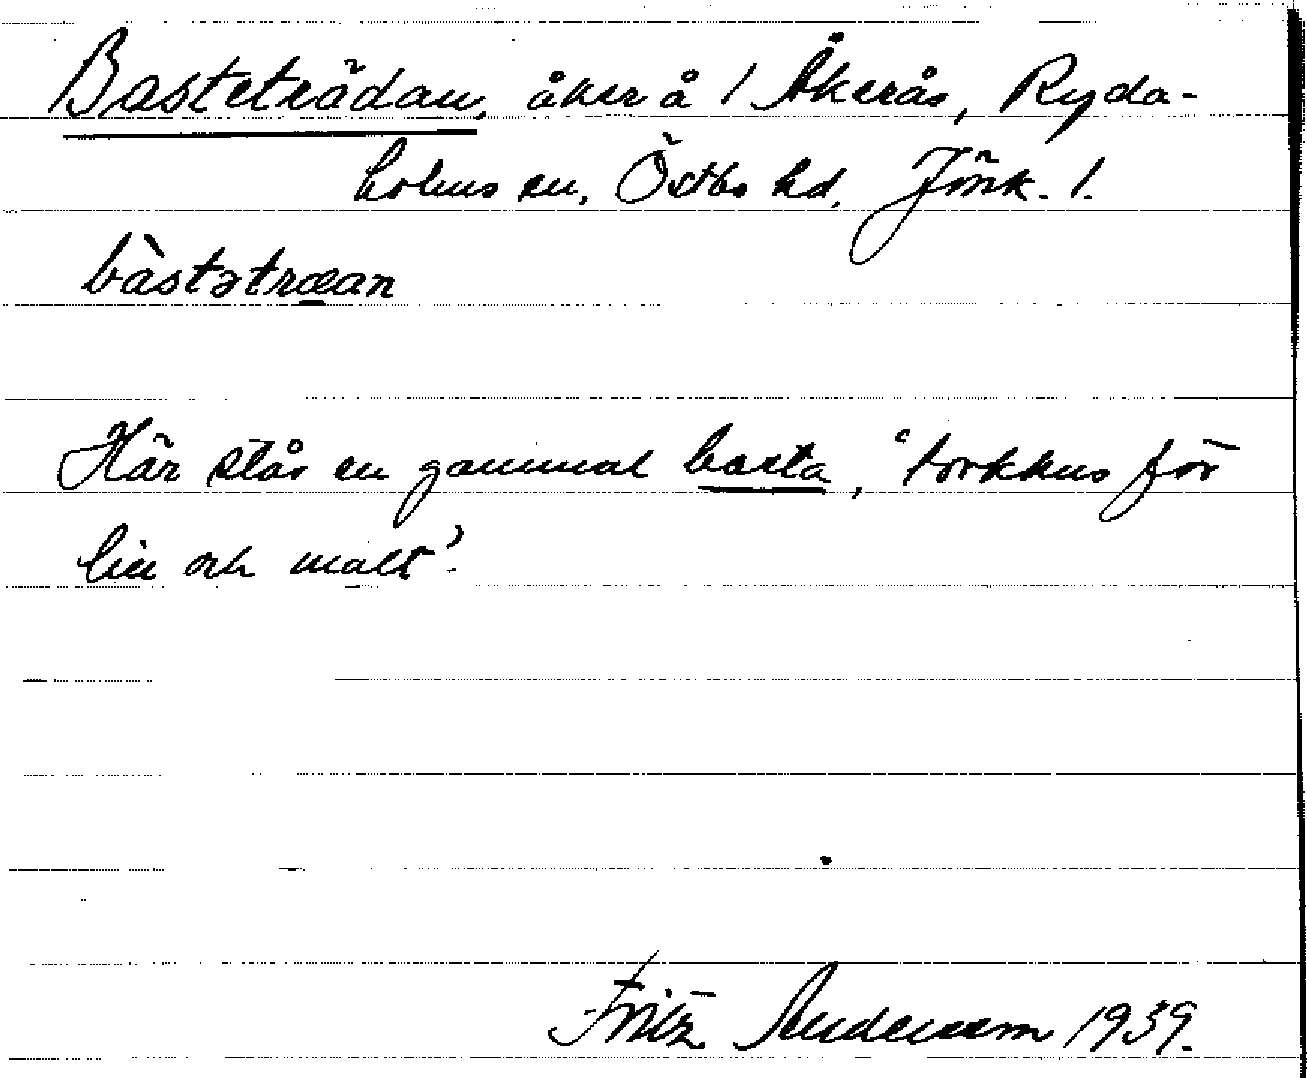 Basteträdan, åker å 1 Åkerås, Ryda-
holms sn, Östbo hd, Jönk. l.
bàstətræan
Här står en gammal basta, 'torkhus för
lin och malt'.
Fritz Anderssom 1939.